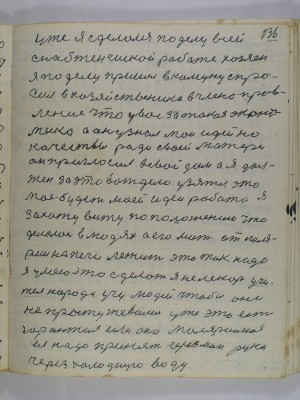 136
уже я сделался по делу всей
снабженческой работе хозяен
я по делу пришел в комуну спро-
сил в хозяйственика в члена прав-
ление что у вас за такая эконо-
мика а он узнал мои идей но
качествы ради своей матери
он пригласил в свой дом а я дол-
жен за это вот дело узяти это
мое будет моей идеи работа я
захожу вижу по положению что
делаися в людях а его мать от
на печи лежит это так надо
я умею это сделат я не лекар учи-
тел народа учу людей чтобы они
не простужевалися уже это ест
гарантия если она малярийная
ей надо принят через мои руки
через холодную воду